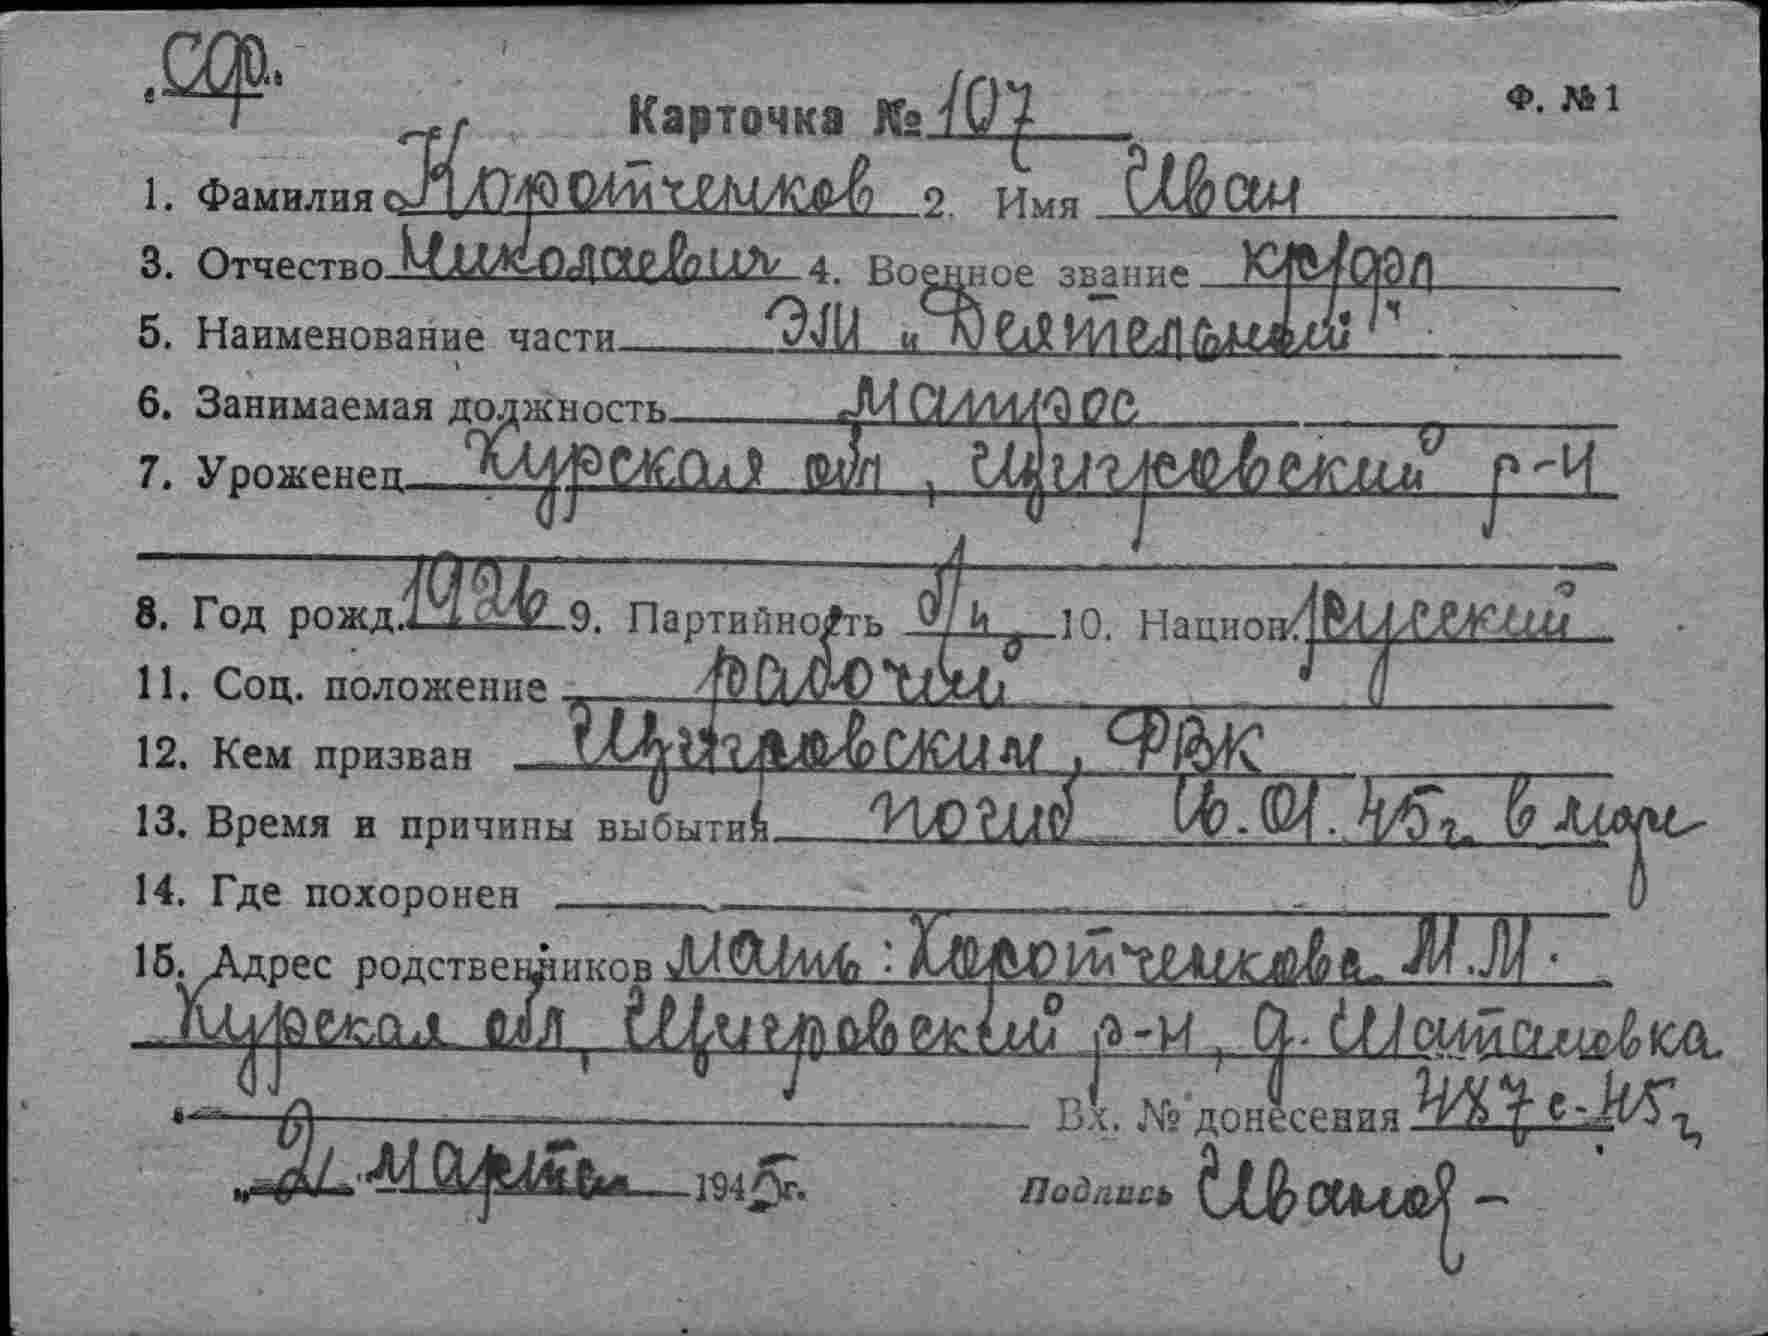 СФ.
Карточка № 107 Ф. №1
1. Фамилия Коротченков 2. Имя Иван
3. Отчество Николаевич 4. Военное звание кр/фл
5. Наименование части ЭМ „Деятельный"
6. Занимаемая должность Матрос
7. Уроженец Курская обл, Щигровский р-н
8. Год рожд. 1926 9. Партийность б/п 10. Национ. русский
11. Соц. положение рабочий
12. Кем призван Щигровским РВК
13. Время и причины выбытия погиб 16.01.45г. в море
14. Где похоронен
15. Адрес родственников Мать: Коротченкова М.М.
Курская обл, Щигровский р-н, д. Шаталовка
Вх. № донесения 487с-45г
„21" Марта 1945г. Подпись Иванов